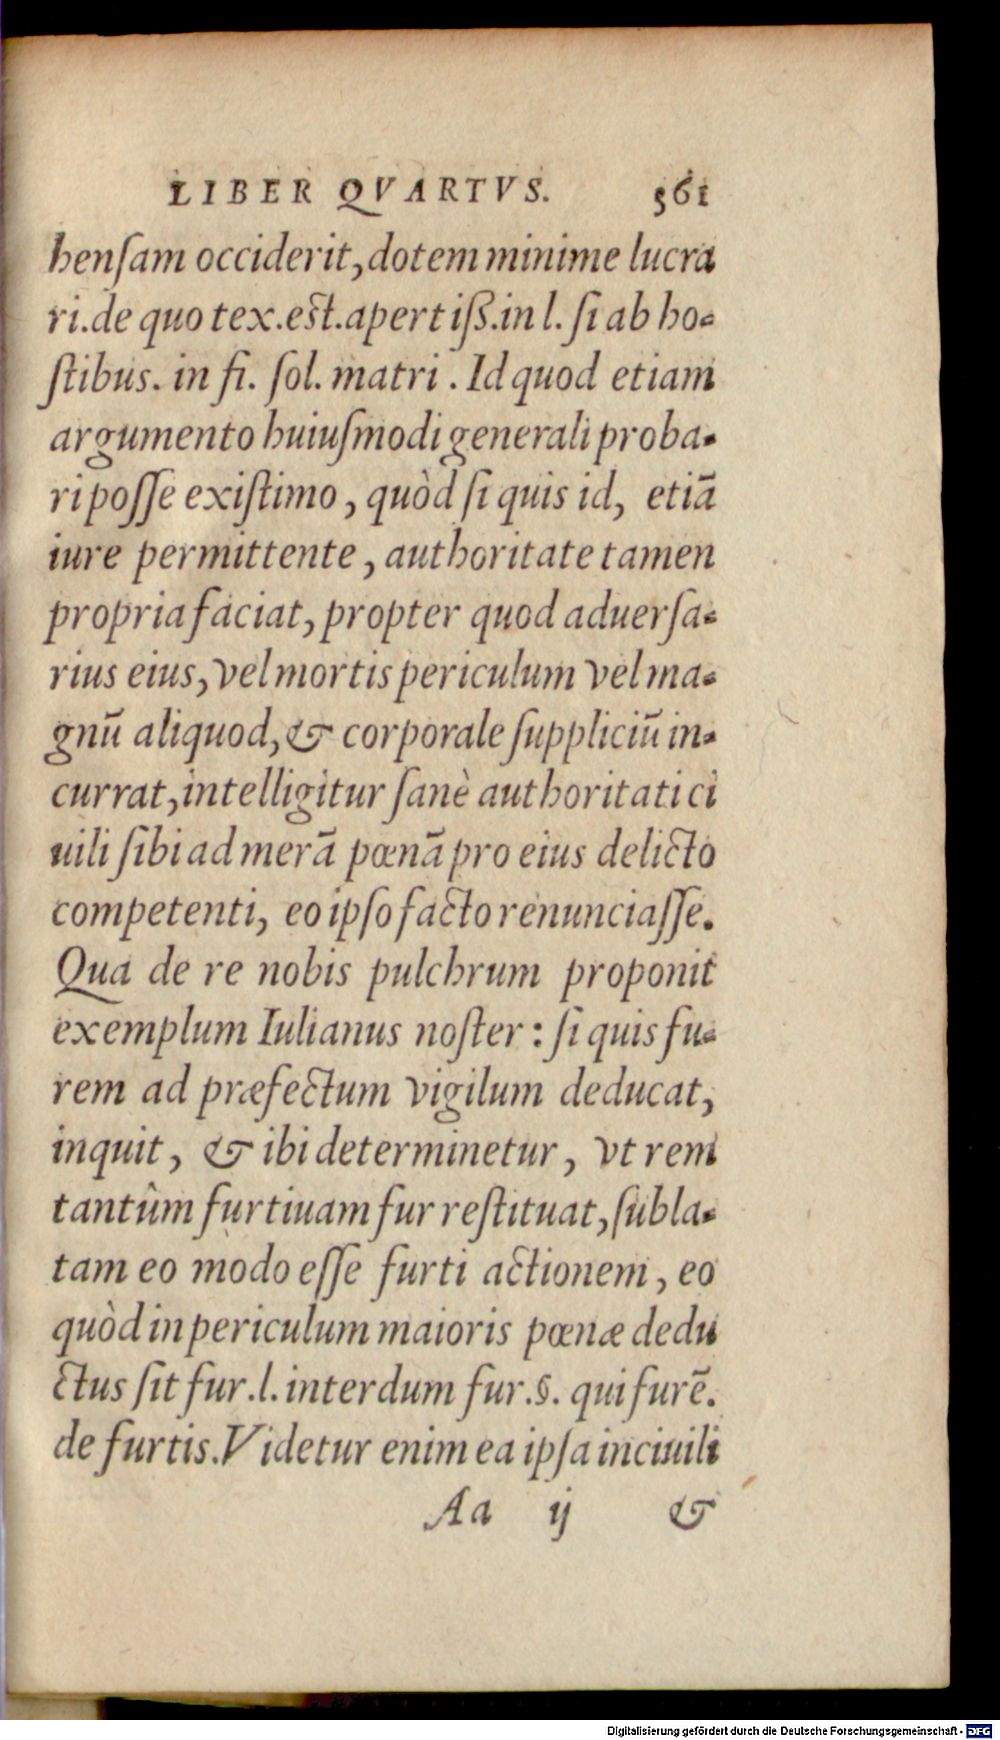 LIBER QVARTVS. 561
henſam occiderit, dotem minime lucra
ri. de quo tex. eſt. apertiß. in l. ſi ab ho-
ſtibus. in fi. ſol. matri. Id quod etiam
argumento huiuſmodi generali proba-
ri poſſe exiſtimo, quòd ſi quis id, etiã
iure permittente, authoritate tamen
propria faciat, propter quod aduerſa-
rius eius, vel mortis periculum vel ma-
gnũ aliquod, & corporale ſuppliciũ in-
currat, intelligitur ſanè authoritati ci
uili ſibi ad merã pœnã pro eius delicto
competenti, eo ipſo facto renunciaſſe.
Qua de re nobis pulchrum proponit
exemplum Iulianus noſter: ſi quis fu-
rem ad præfectum vigilum deducat,
inquit, & ibi determinetur, vt rem
tantûm furtiuam fur reſtituat, ſubla-
tam eo modo eſſe furti actionem, eo
quòd in periculum maioris pœnæ dedu
ctus ſit fur. l. interdum fur. §. qui furẽ.
de furtis. Videtur enim ea ipſa inciuili
Aa ij &
Digitalisierung gefördert durch die Deutsche Forschungsgemeinschaft - DFG